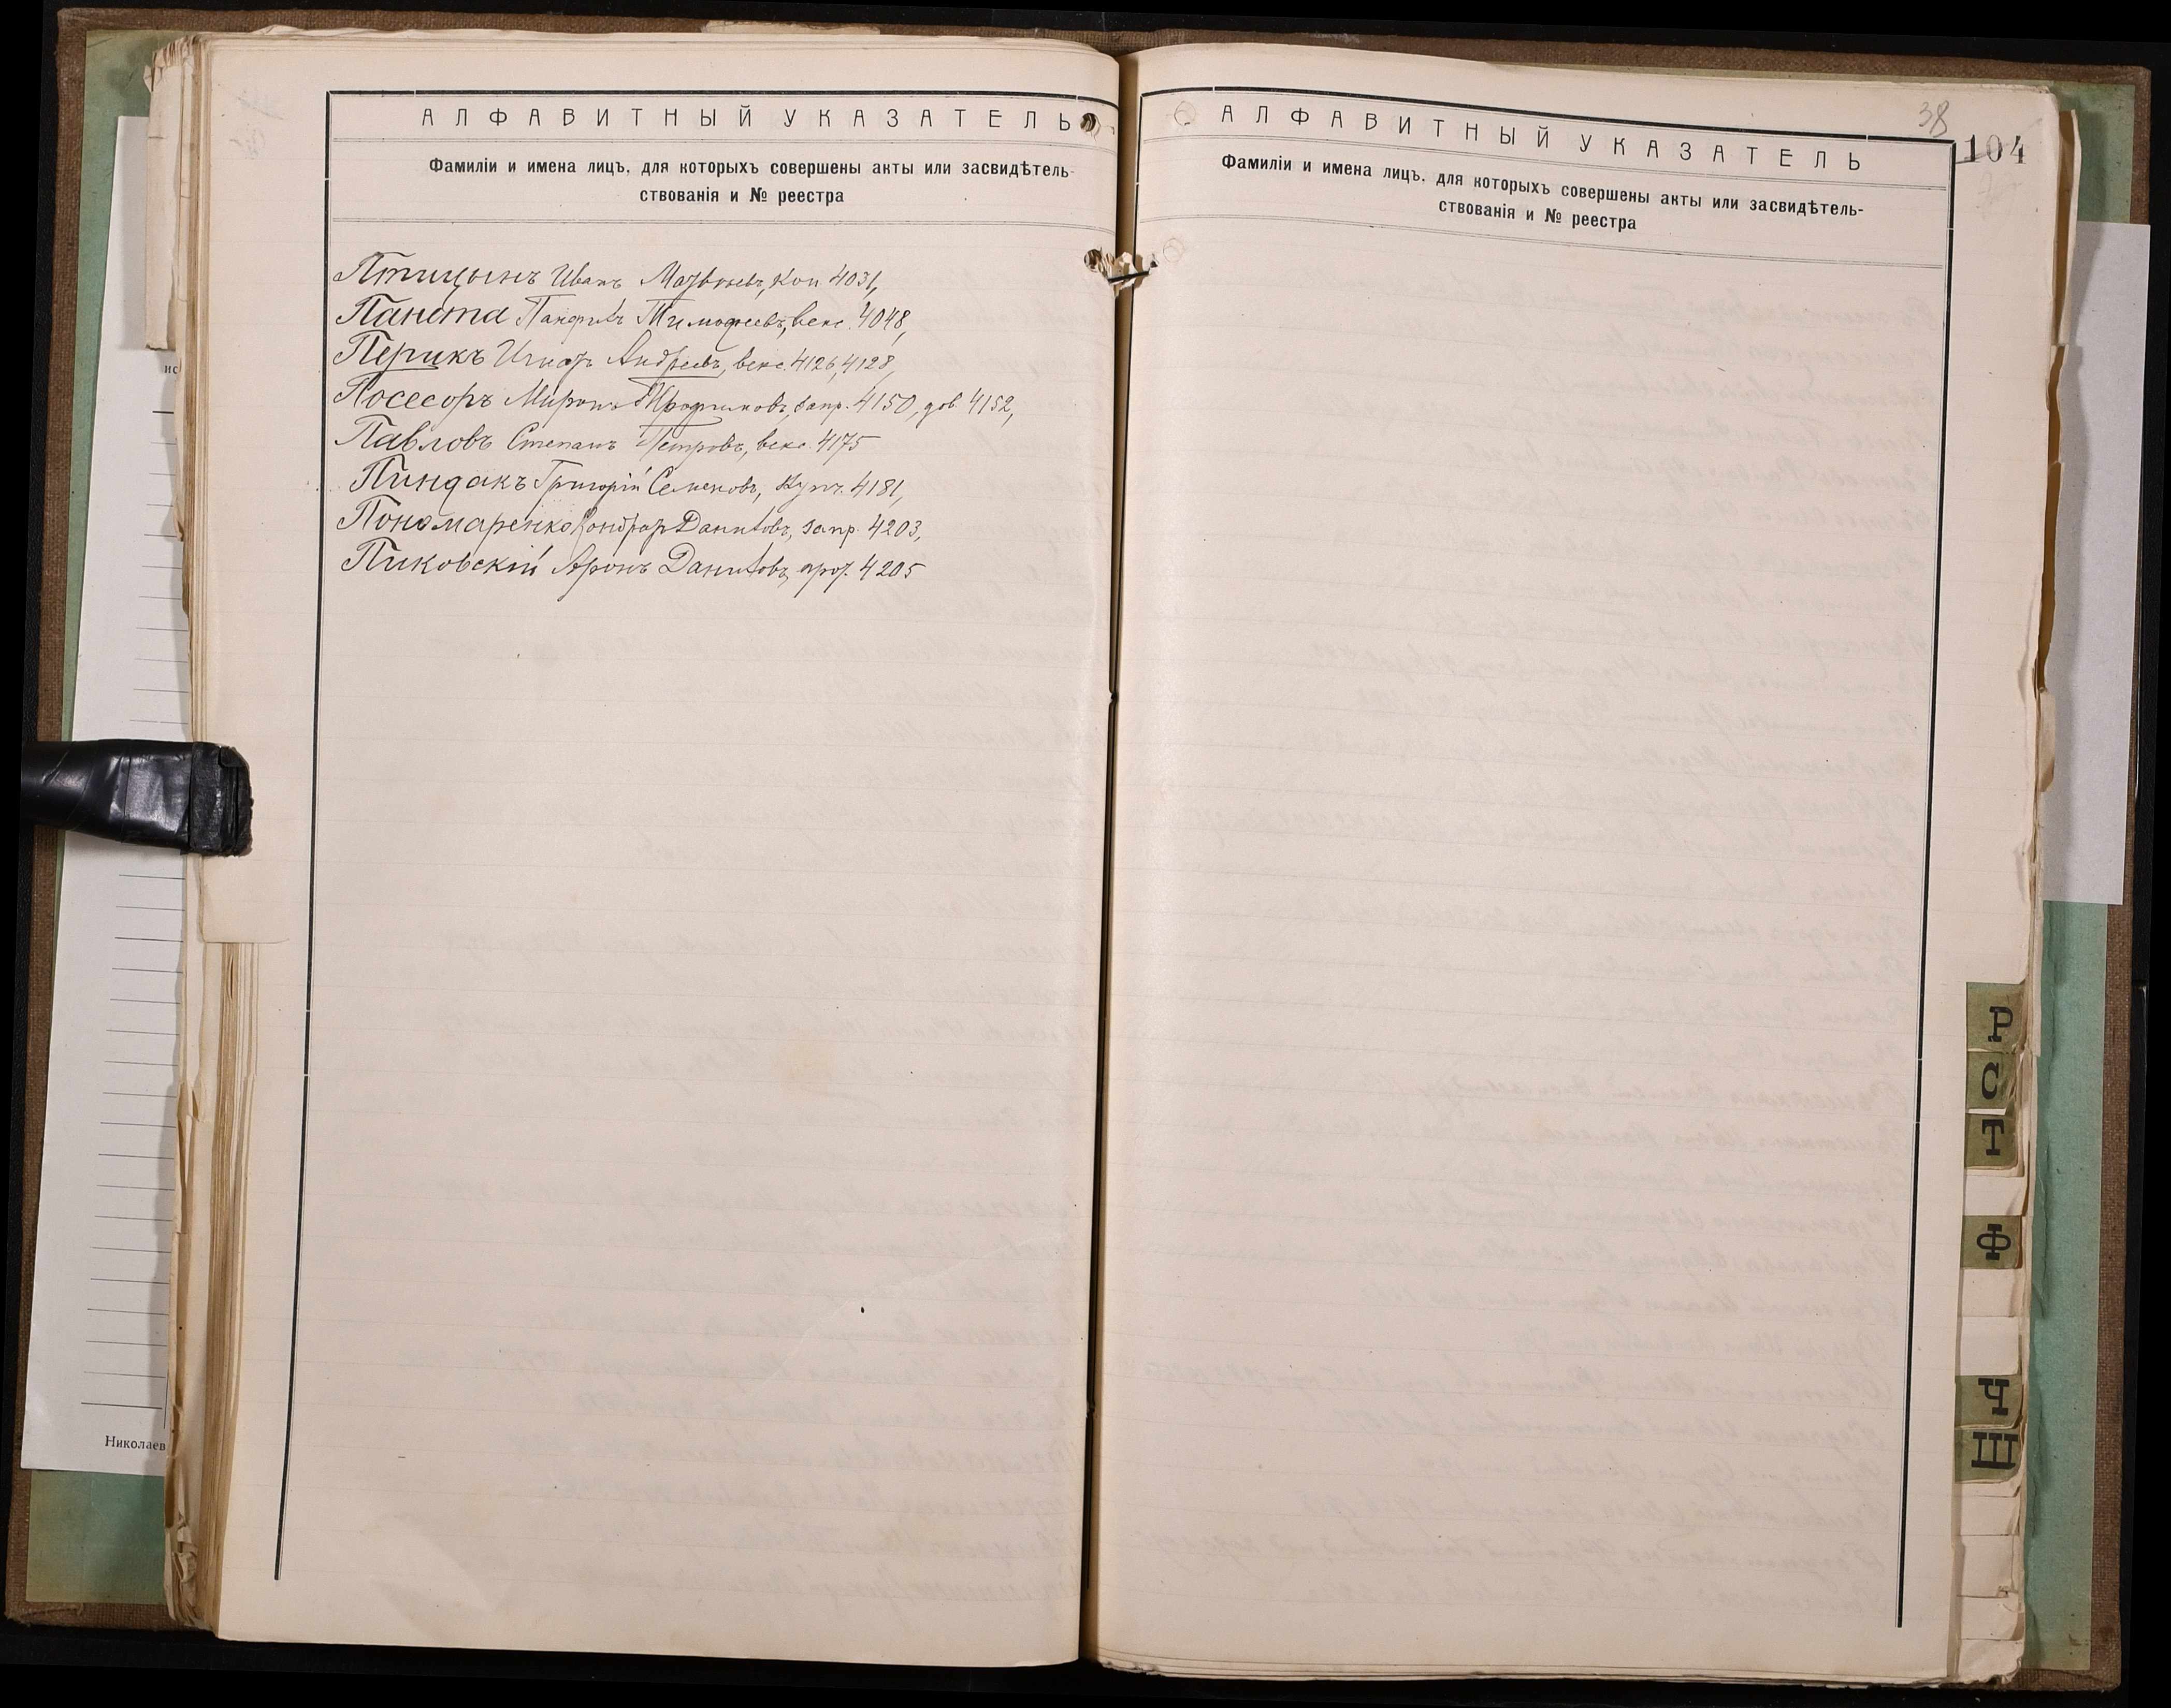 АЛФАВИТНЫЙ УКАЗАТЕЛЬ
Фамиліи и имена лицъ, для которыхъ совершены акты или засвидѣтель-
ствованія и № реестра
Птицынъ Иванъ Матвѣевъ, коп 4031,
Панота Панфилъ Тимофеевъ, векс. 4048,
Перикъ Игнатъ Андреевъ, векс. 4126, 4128,
Посесоръ Миронъ запр. 4150, дов. 4152,
Павловъ Степанъ Петровъ, векс. 4175
Пиндакъ Григорій Семеновъ, купч. 4181,
Пономаренко Кондрат Данилов, запр. 4203,
Пиковскій Аронъ Даниловъ, прот. 4205
АЛФАВИТНЫЙ УКАЗАТЕЛЬ
Фамиліи и имена лицъ, для которыхъ совершены акты или засвидѣтель-
ствованія и № реестра
38
104
Р
С
Т
Ф
Ч
Ш
ис
Николаев